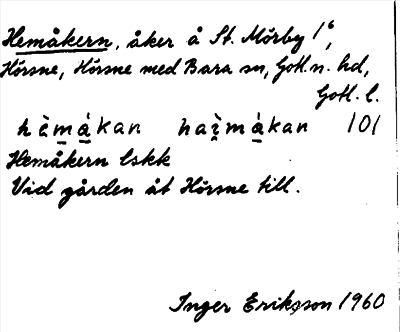 Hemåkern, åker å St. Mörby 1⁶,
Hörsne, Hörsne med Bara sn, Gotl. n. hd,
Gotl. l.
hὲ̱má̱kan haì̱má̱kan 101
Hemåkern lskk
Vid gården åt Hörsne till.
Inger Eriksson 1960